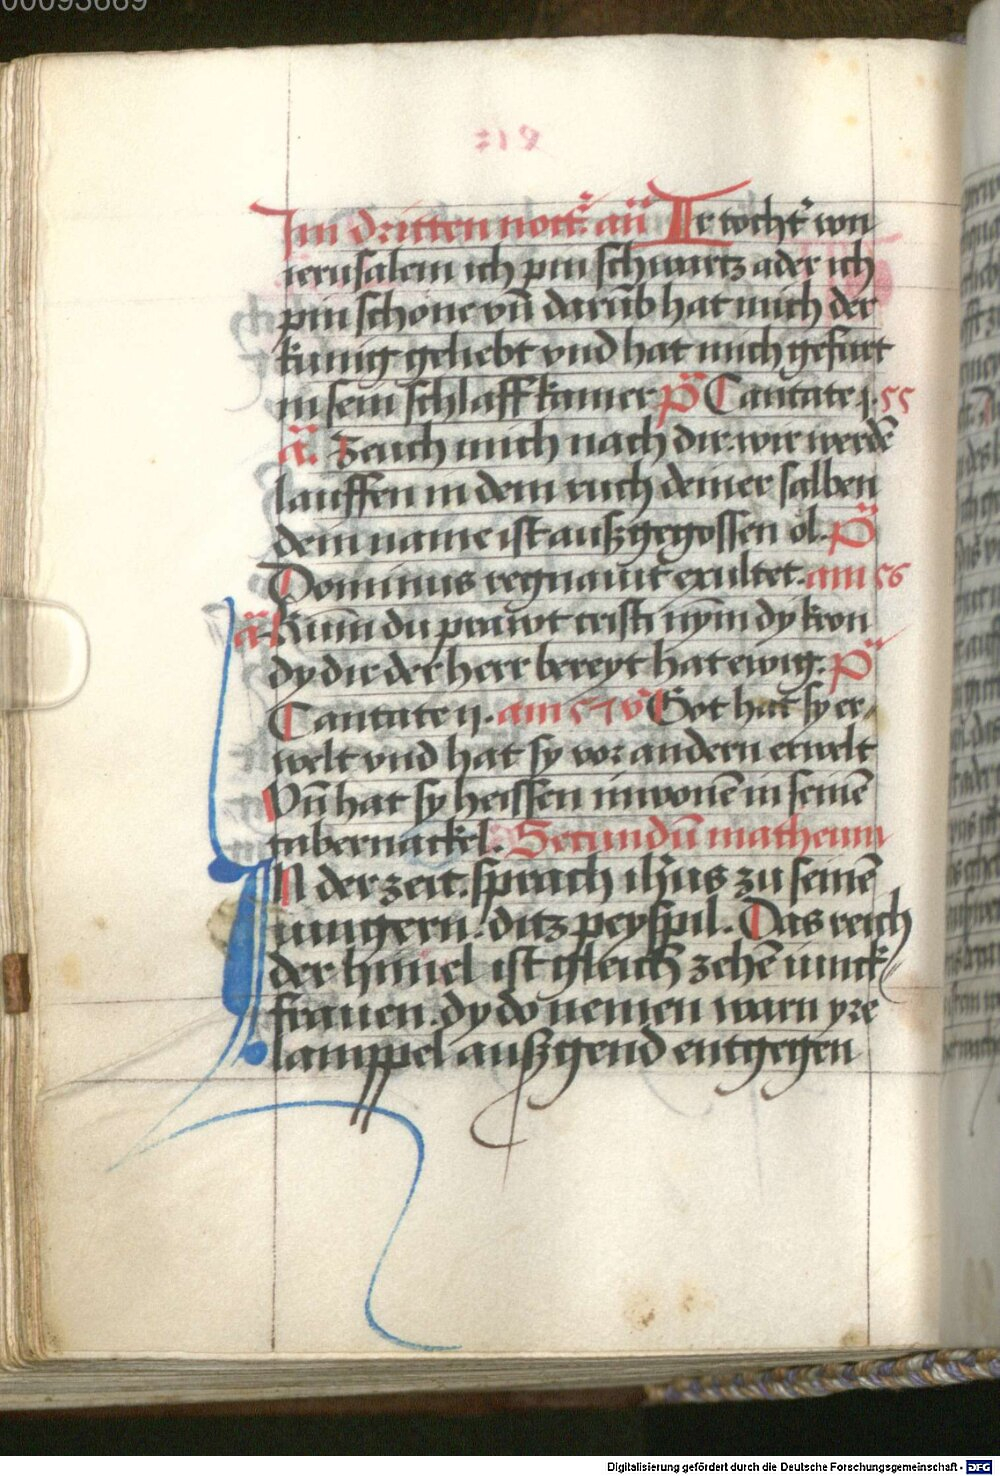 00093669
Im dritten nott᷑ an̄ Ir tocht᷑ von
ierusalem ich pin schwartz ader ich
pin schone vn̄ darūb hat mich der
kunig geliebt vnd hat mich gefurt
in sein schlaffkamer p̄ Cantate j. 55
a᷑. Zeuch mich nach dir. wir werdē
lauffen in dem ruch deiner salben
dein name ist außgegossen ol. p̄
Dominus regnauit exultet. am 56
a᷑ Kum̄ du prawt cristi nym̄ dy kron
dy dir der herr bereyt hat ewig. p̄
Cantate ij. am 57 v᷑ Got hat sy er-
welt vnd hat sy vor andern erwelt
Vn̄ hat sy heissen inwonē in seinē
tabernackel. Secundū matheum
IN der zeit. sprach ih̄us zu seinē
iungern. ditz peyspil. Das reich
der himel ist gleich zehē iunck-
frauen. dy do nemen warn yre
lamppel außgend entgegen
Digitalisierung gefördert durch die Deutsche Forschungsgemeinschaft - DFG